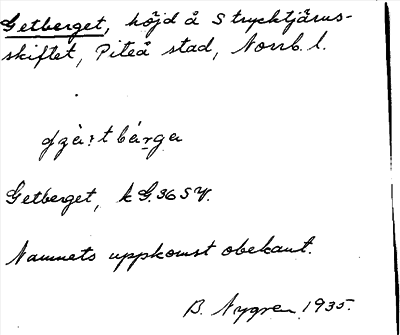 Getberget, höjd å Strycktjärns-
skiftet, Piteå stad, Norrb. l.
Getberget, k G. 36 SV.
Namnets uppkomst obekant.
B. Nygren 1935.